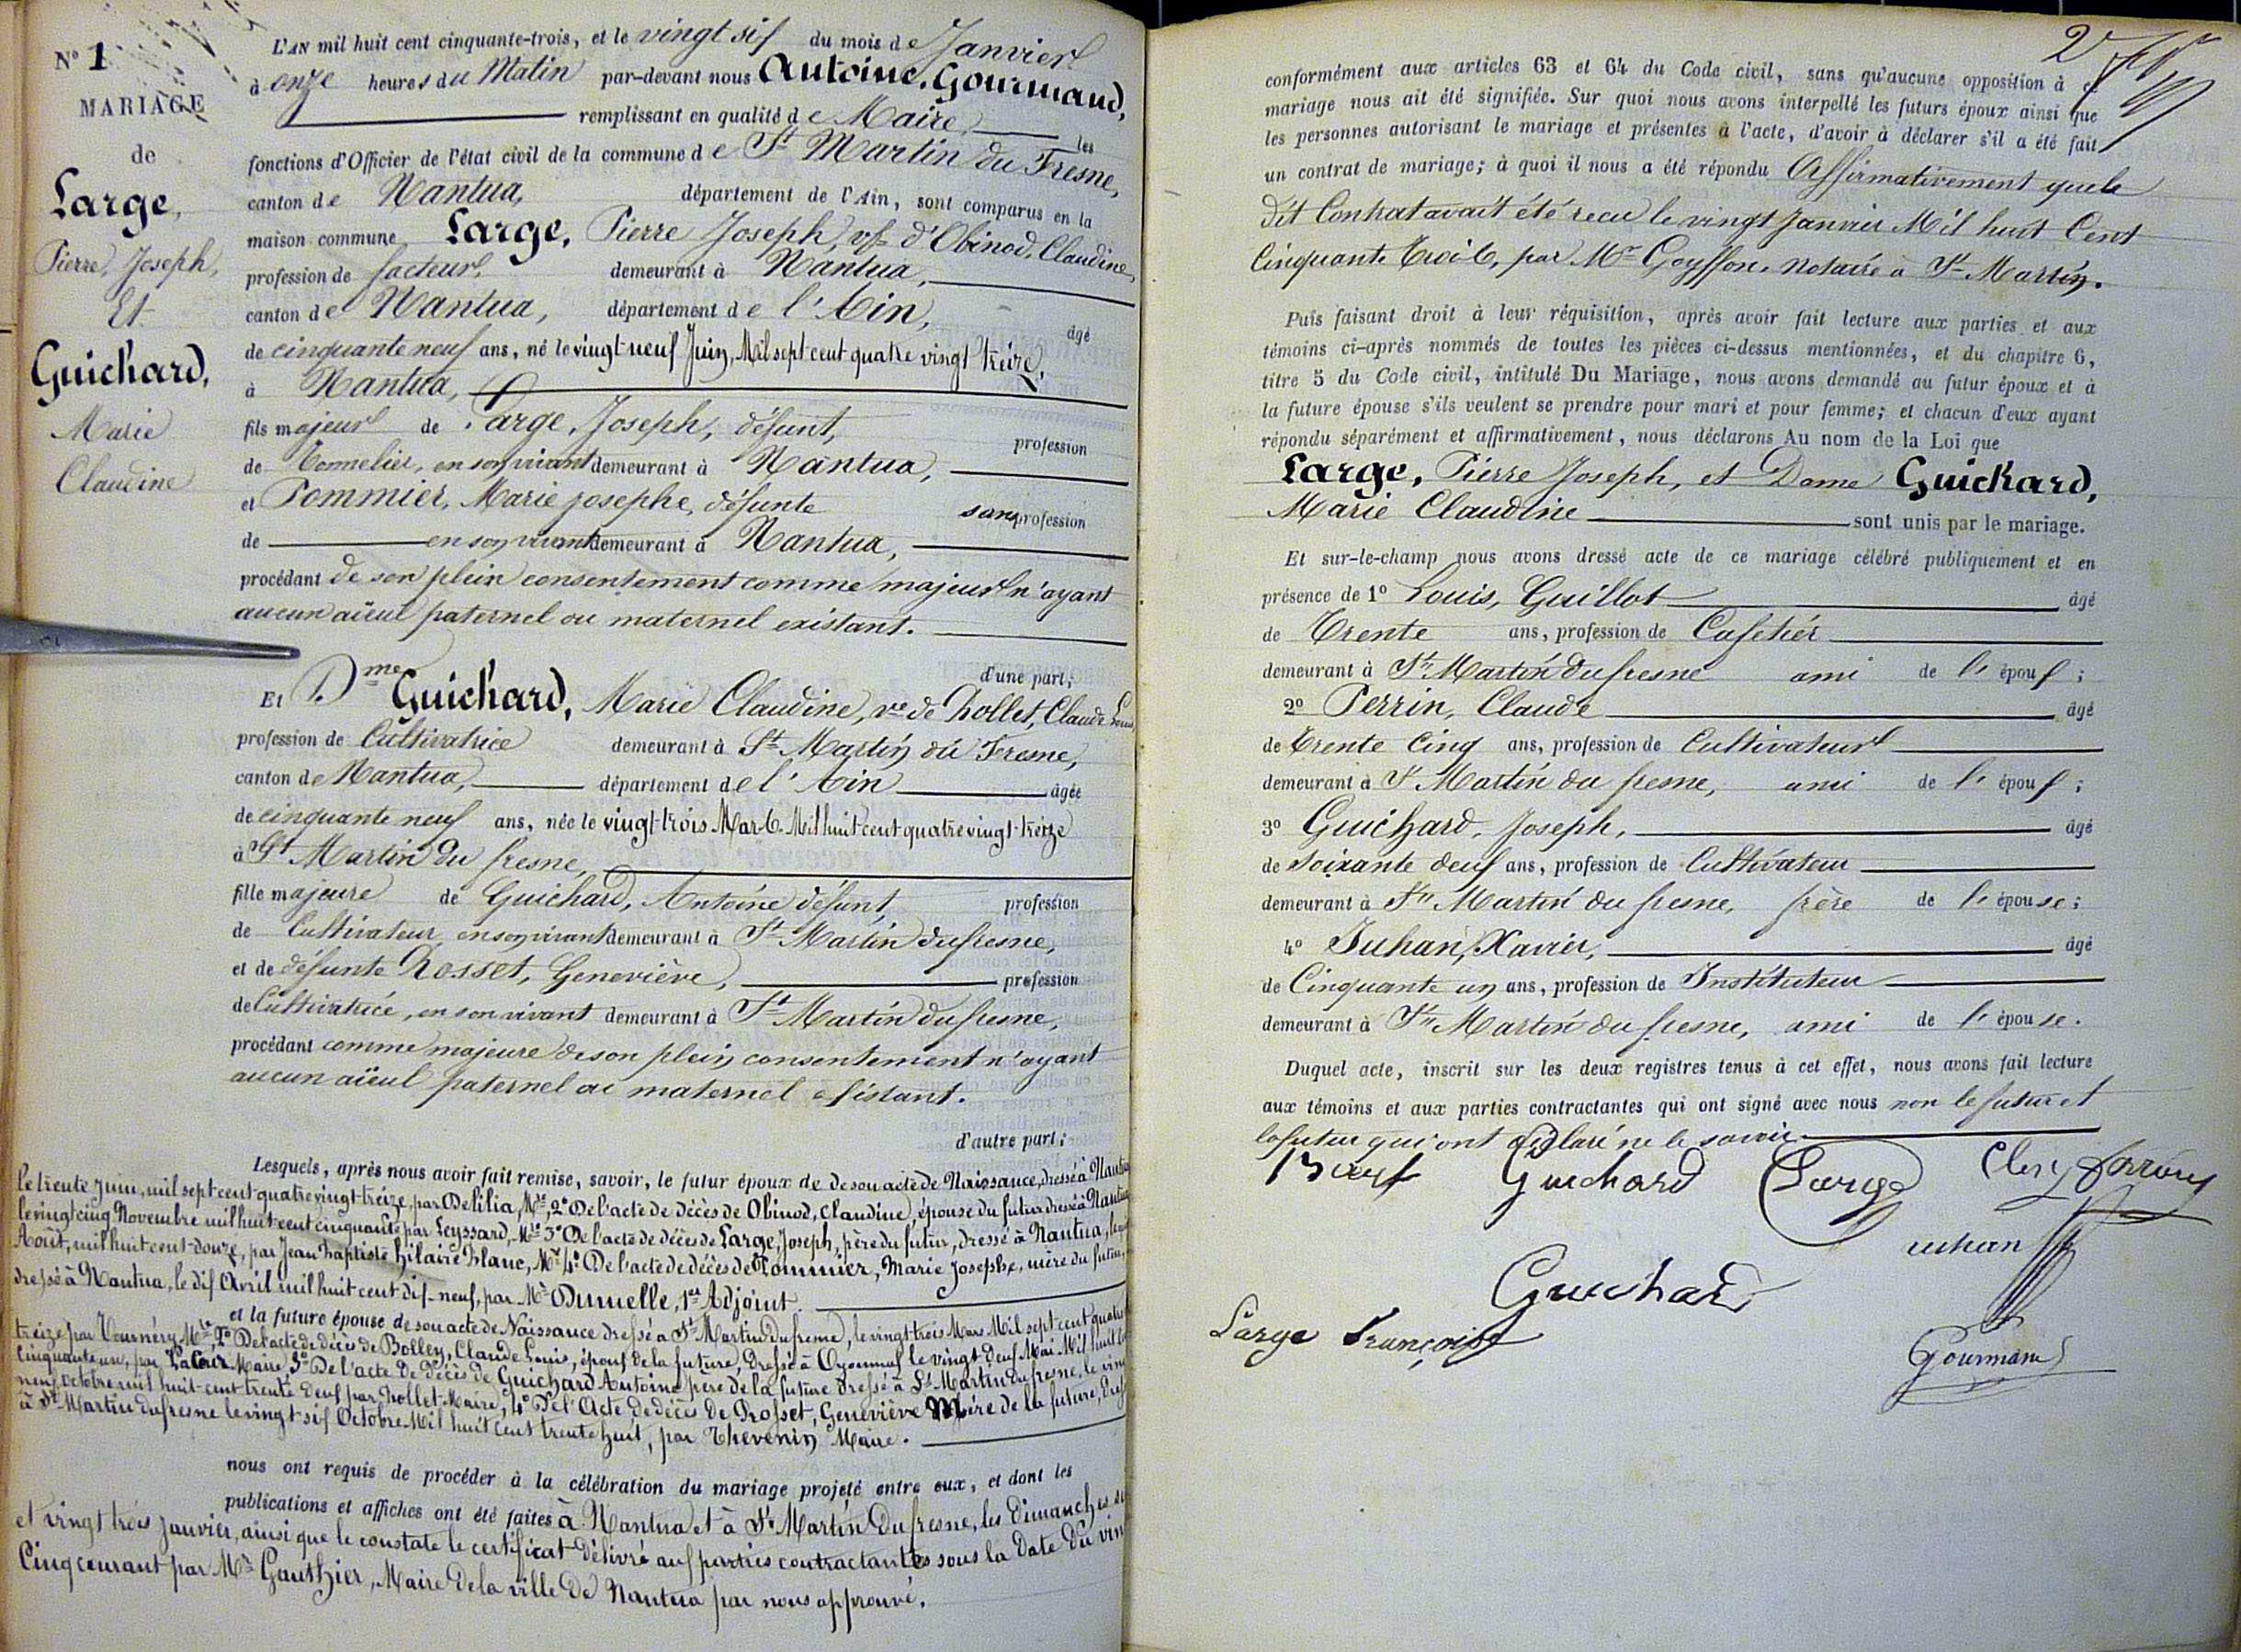 N° 1
MARIAGE
de
Large,
Pierre, Joseph,
Et
Guichard,
Marie
Claudine
L'AN mil huit cent cinquante-trois, et le vingt six du mois de Janvier
à onze heures du Matin par-devant nous Antoine, Gourmand,
remplissant en qualité de Maire, les
fonctions d'Officier de l'état civil de la commune de St Martin du Fresne,
canton de Nantua, département de l'Ain, sont comparus en la
maison commune Large, Pierre Joseph, vf d'Obinod, Claudine,
profession de facteur, demeurant à Nantua,
canton de Nantua, département de l'Ain, âgé
de cinquante neuf ans, né le vingt-neuf Juin, Mil sept cent quatre vingt treize,
à Nantua,
fils majeur de Large, Joseph, défunt, profession
de Tonnelier, en son vivant demeurant à Nantua,
et Pommier, Marie josephe, défunte sans profession
de en son vivant demeurant à Nantua,
procédant de son plein consentement comme majeur n'ayant
aucun aïeul paternel ou maternel existant.
d'une part;
Et Dme Guichard, Marie Claudine, ve de Bollet, Claude Louis
profession de Cultivatrice demeurant à St Martin du Fresne,
canton de Nantua, département de l'Ain âgée
de cinquante neuf ans, née le vingt-trois Mars Mil huit cent quatre vingt-treize
à St Martin du fresne,
fille majeure de Guichard, Antoine défunt, profession
de Cultivateur en son vivant demeurant à St Martin du fresne,
et de défunte Rosset, Geneviève, profession
de Cultivatrice, en son vivant demeurant à St Martin du fresne,
procédant comme majeure de son plein consentement n'ayant
aucun aïeul paternel ou maternel existant.
d'autre part;
Lesquels, après nous avoir fait remise, savoir, le futur époux de de son acte de Naissance, dressé à Nantua
le trente Juin, mil sept cent quatre vingt-treize, par Delilia, Mre, 2° De l'acte de décès de Obinod, Claudine, épouse du futur dressé à Nantua
le vingt cinq Novembre mil huit cent cinquante par Leyssard, Mre 3° De l'acte de décès de Large, Joseph, père du futur, dressé à Nantua,
Août, mil huit cent-douze, par Jean Baptiste hilaire Blanc, Mre 4° De l'acte de décès de Pommier, Marie Josephe, mère du futur,
dressé à Nantua, le dix Avril mil huit cent dix-neuf, par Mr Dumelle, 1er Adjoint.
et la future épouse de son acte de Naissance dressé à St Martin du fresne, le vingt-trois Mars Mil sept cent quatre
treize par Tournéry Mre 2° De l'acte de décès de Bolley, Claude Louis, époux de la future, Dressé à Oyonnax le vingt-deux Mai Mil huit
Cinquante un, par Lacour Maire 3° De l'acte de décès de Guichard Antoine père de la future dressé à St Martin du fresne, le vingt
neuf octobre mil huit-cent trente deux par Bollet Maire, 4° De l'Acte de décès de Rosset, Geneviève Mère de la future,
à St Martin du fresne le vingt-six Octobre Mil huit cent trente huit, par Thevenin Maire.
nous ont requis de procéder à la célébration du mariage projeté entre eux, et dont les
publications et affiches ont été faites à Nantua et à St Martin Du fresne, les Dimanches
et vingt trois janvier, ainsi que le constate le certificat délivré aux parties contractantes sous la date du vingt
Cinq courant par Mr Gauthier, Maire de la ville de Nantua par nous approuvé.
2
conformément aux articles 63 et 64 du Code civil, sans qu'aucune opposition à ce
mariage nous ait été signifiée. Sur quoi nous avons interpellé les futurs époux ainsi que
les personnes autorisant le mariage et présentes à l'acte, d'avoir à déclarer s'il a été fait
un contrat de mariage; à quoi il nous a été répondu Affirmativement que le
dit Contrat avait été recu le vingt Janvier Mil huit Cent
Cinquante trois, par Mr Goyffon Notaire à St Martin.
Puis faisant droit à leur réquisition, après avoir fait lecture aux parties et aux
témoins ci-après nommés de toutes les pièces ci-dessus mentionnées, et du chapitre 6,
titre 5 du Code civil, intitulé Du Mariage, nous avons demandé au futur époux et à
la future épouse s'ils veulent se prendre pour mari et pour femme; et chacun d'eux ayant
répondu séparément et affirmativement, nous déclarons Au nom de la Loi que
Large, Pierre Joseph, et Dame Guichard,
Marie Claudine sont unis par le mariage.
Et sur-le-champ nous avons dressé acte de ce mariage célébré publiquement et en
présence de 1° Louis, Guillot âgé
de Trente ans, profession de Cafetiér
demeurant à St Martin du fresne ami de l'époux;
2° Perrin, Claude âgé
de Trente Cinq ans, profession de Cultivateur
demeurant à St Martin du fresne, ami de l'époux;
3° Guichard, Joseph, âgé
de soixante deux ans, profession de Cultivateur
demeurant à St Martin du fresne, frère de l'épouse;
4° Juhan, Xavier, âgé
de Cinquante un ans, profession de Instituteur
demeurant à St Martin du fresne, ami de l'épouse.
Duquel acte, inscrit sur les deux registres tenus à cet effet, nous avons fait lecture
aux témoins et aux parties contractantes qui ont signé avec nous non le futur et
la futur qui ont déclaré ne le savoir.
Guichard Large
Juhan
Guichard
Large François
Gourmand